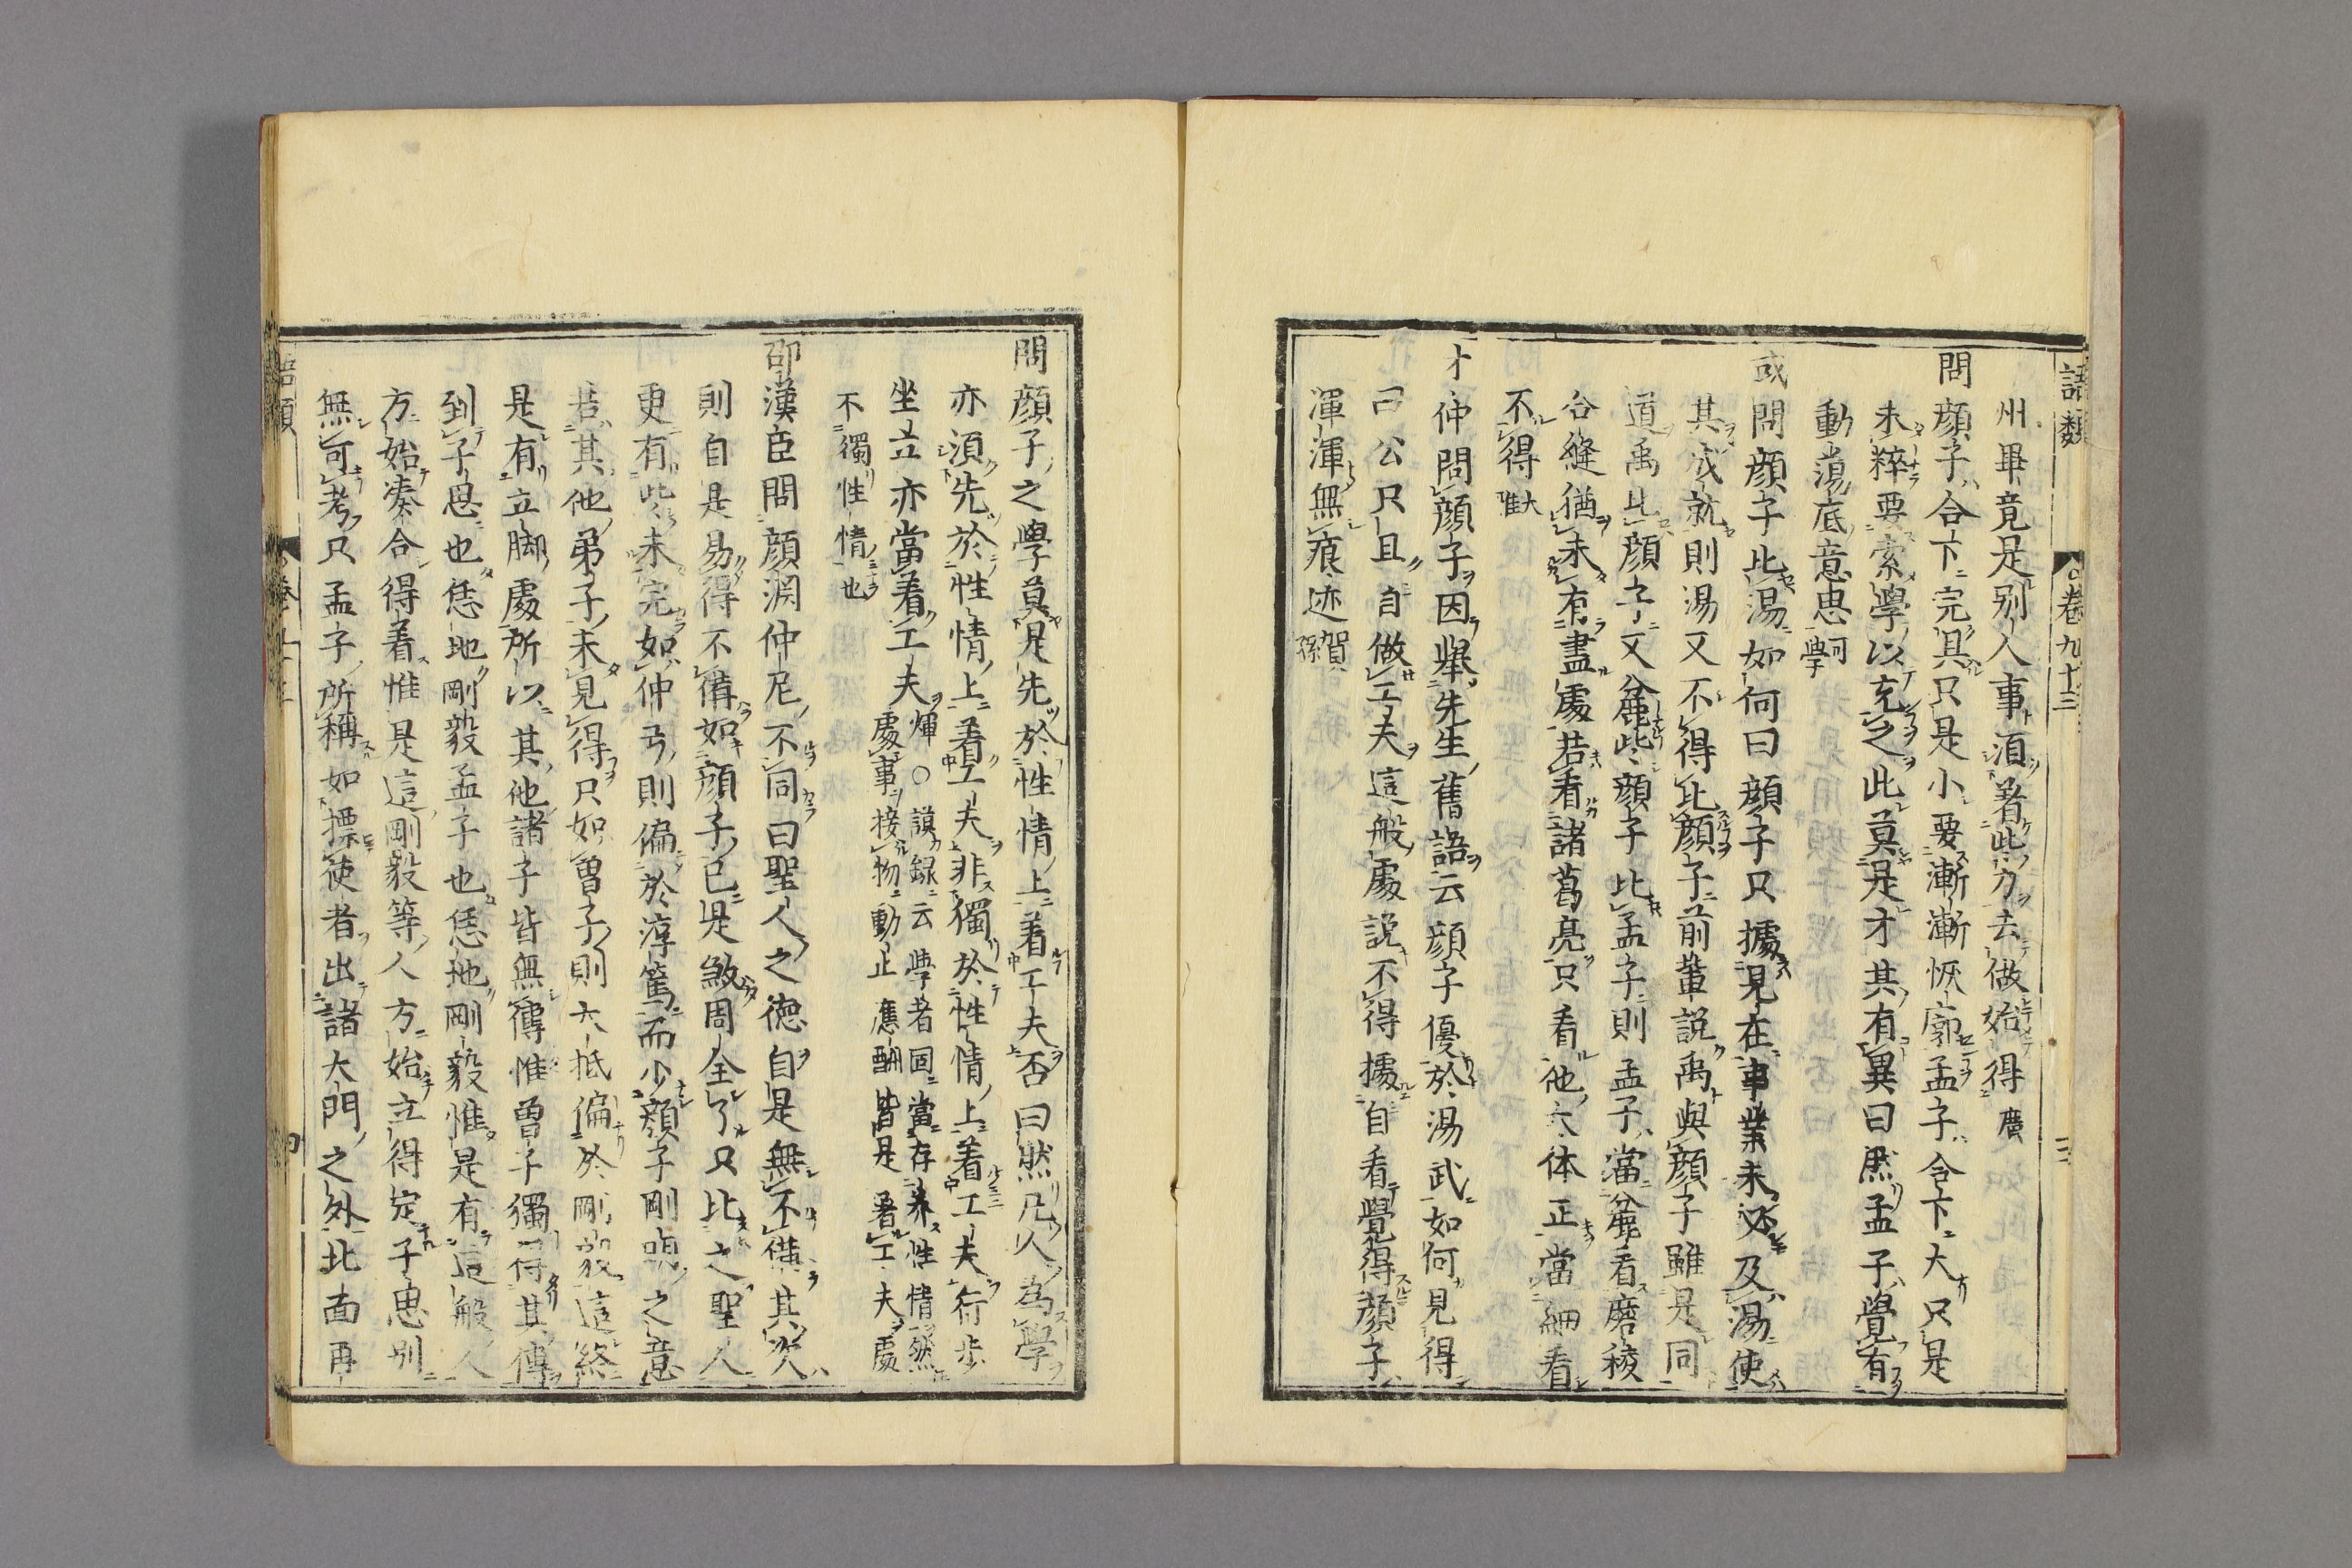 語類
卷九十三
三
州畢竟是別人事須着此力去做始得廣
問顔子合下完具只是小要漸漸恢廓孟子合下大只是
未粹要索學以充之此莫是才具有異曰然孟子覺有
動蕩底意思可學
或問顔子比湯如何曰顔子只據見在事業未必及湯使
其成就則湯又不得比顔子前輩説禹與顔子雖是同
道禹比顔子又麄些顔子比孟子則孟子當麄看磨稜
合縫猶未有盡處若看諸葛亮只看他大体正當細看
不得大雅
才仲問顔子因舉先生舊語云顔子優於湯武如何見得
曰公只且自做工夫這般處説不得據自看覺得顔子
渾渾無痕迹賀孫
問顔子之學莫是先於性情上着工夫否曰然凡人為學
亦須先於性情上着工夫非獨於性情上着工夫行步
坐立亦當着工夫煇○謨録云學者固當存养性情然
處事接物動止應酬皆是着工夫處
不獨性情也
邵漢臣問顔淵仲尼不同曰聖人之德自是無不備其次
則自是易得不備如顔子已是煞周全了只比之聖人
更有些未完如仲弓則偏於淳篤而少顔子剛明之意
若其他弟子未見得只如曾子則大抵偏於剛毅這終
是有立脚處所以其他諸子皆無傳惟曾子獨得其傳
到子思也恁地剛毅孟子也恁地剛毅惟是有這般人
方始湊合得着惟是這剛毅等人方始立得定子思別
無可考只孟子所稱如摽使者出諸大門之外北面再
語類